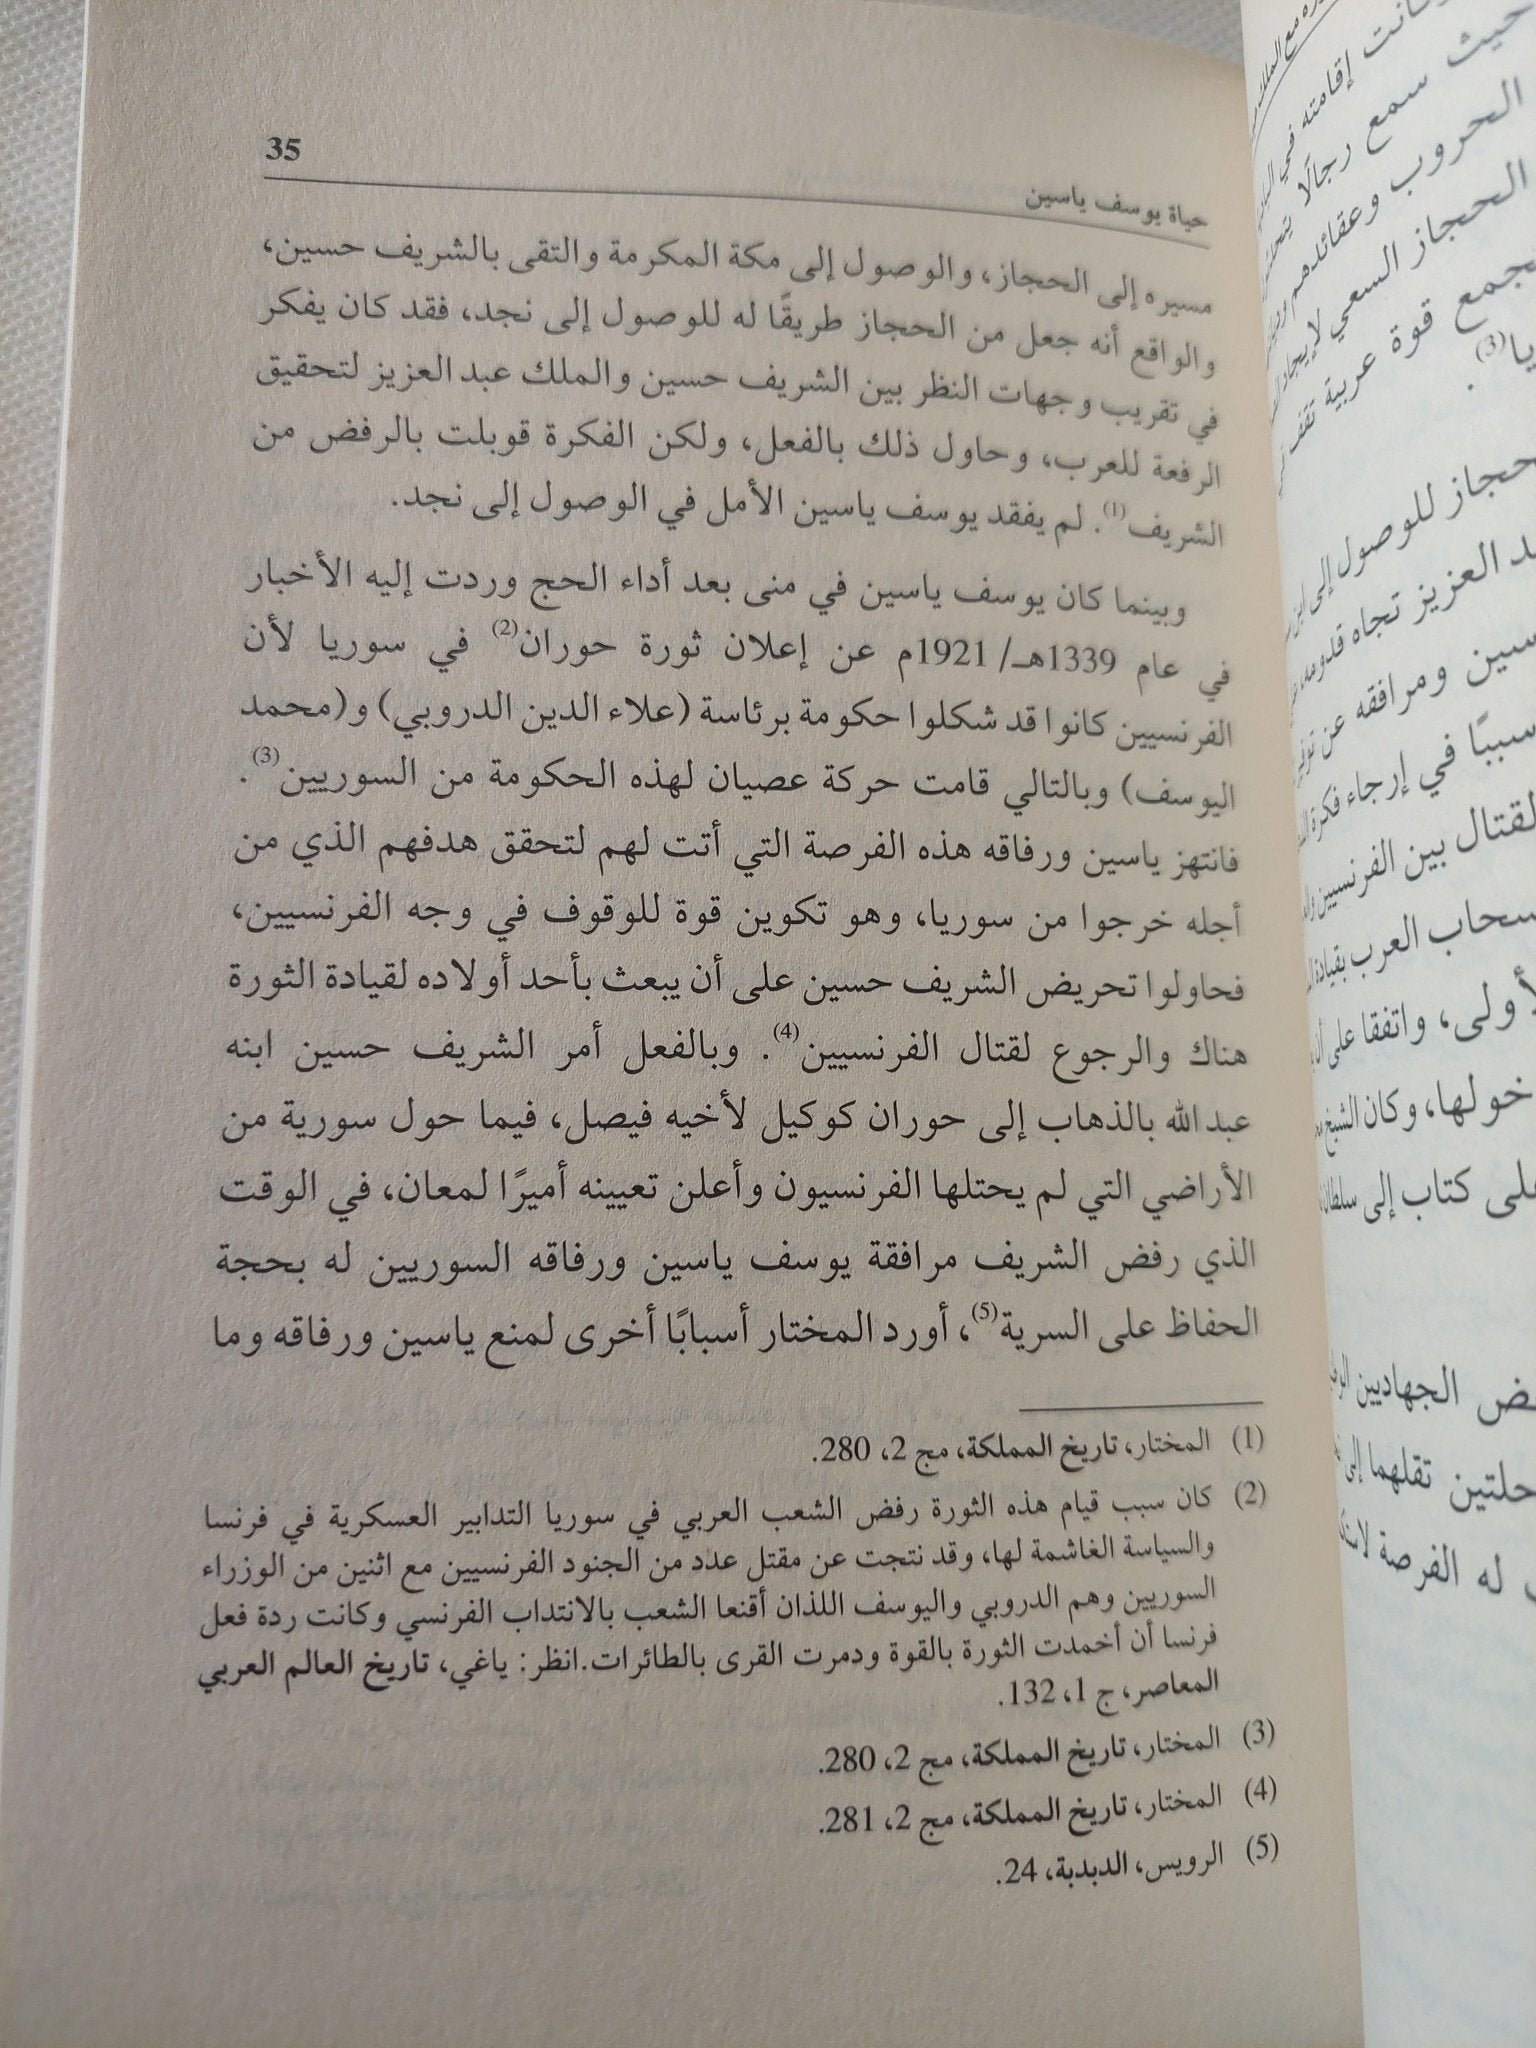 35
حياة يوسف ياسين
مسيره إلى الحجاز، والوصول إلى مكة المكرمة والتقى بالشريف حسين،
والواقع أنه جعل من الحجاز طريقًا له للوصول إلى نجد، فقد كان يفكر
في تقريب وجهات النظر بين الشريف حسين والملك عبد العزيز لتحقيق
الرفعة للعرب، وحاول ذلك بالفعل، ولكن الفكرة قوبلت بالرفض من
الشريف(1). لم يفقد يوسف ياسين الأمل في الوصول إلى نجد.
وبينما كان يوسف ياسين في منى بعد أداء الحج وردت إليه الأخبار
في عام 1339هـ/ 1921م عن إعلان ثورة حوران(2) في سوريا لأن
الفرنسيين كانوا قد شكلوا حكومة برئاسة (علاء الدين الدروبي) و(محمد
اليوسف) وبالتالي قامت حركة عصيان لهذه الحكومة من السوريين(3).
فانتهز ياسين ورفاقه هذه الفرصة التي أتت لهم لتحقق هدفهم الذي من
أجله خرجوا من سوريا، وهو تكوين قوة للوقوف في وجه الفرنسيين،
فحاولوا تحريض الشريف حسين على أن يبعث بأحد أولاده لقيادة الثورة
هناك والرجوع لقتال الفرنسيين(4). وبالفعل أمر الشريف حسين ابنه
عبد الله بالذهاب إلى حوران كوكيل لأخيه فيصل، فيما حول سورية من
الأراضي التي لم يحتلها الفرنسيون وأعلن تعيينه أميرًا لمعان، في الوقت
الذي رفض الشريف مرافقة يوسف ياسين ورفاقه السوريين له بحجة
الحفاظ على السرية(5)، أورد المختار أسبابًا أخرى لمنع ياسين ورفاقه وما
(1) المختار، تاريخ المملكة، مج 2، 280.
(2) كان سبب قيام هذه الثورة رفض الشعب العربي في سوريا التدابير العسكرية في فرنسا
والسياسة الغاشمة لها، وقد نتجت عن مقتل عدد من الجنود الفرنسيين مع اثنين من الوزراء
السوريين وهم الدروبي واليوسف اللذان أقنعا الشعب بالانتداب الفرنسي وكانت ردة فعل
فرنسا أن أخمدت الثورة بالقوة ودمرت القرى بالطائرات.انظر: ياغي، تاريخ العالم العربي
المعاصر، ج 1، 132.
(3) المختار، تاريخ المملكة، مج 2، 280.
(4) المختار، تاريخ المملكة، مج 2، 281.
(5) الرويس، الدبدبة، 24.
إقامته في
حيث سمع رجالًا
الحروب وعقائدهم
الحجاز السعي لإيجاد
قوة عربية تقف
(3).
للوصول إلى
العزيز تجاه قدومه
ومرافقه عن
سببًا في إرجاء فكرة
لقتال بين الفرنسيين
العرب بقيادة
واتفقا على
وكان الشيخ
كتاب إلى
الجهاديين
تقلهما إلى
له الفرصة